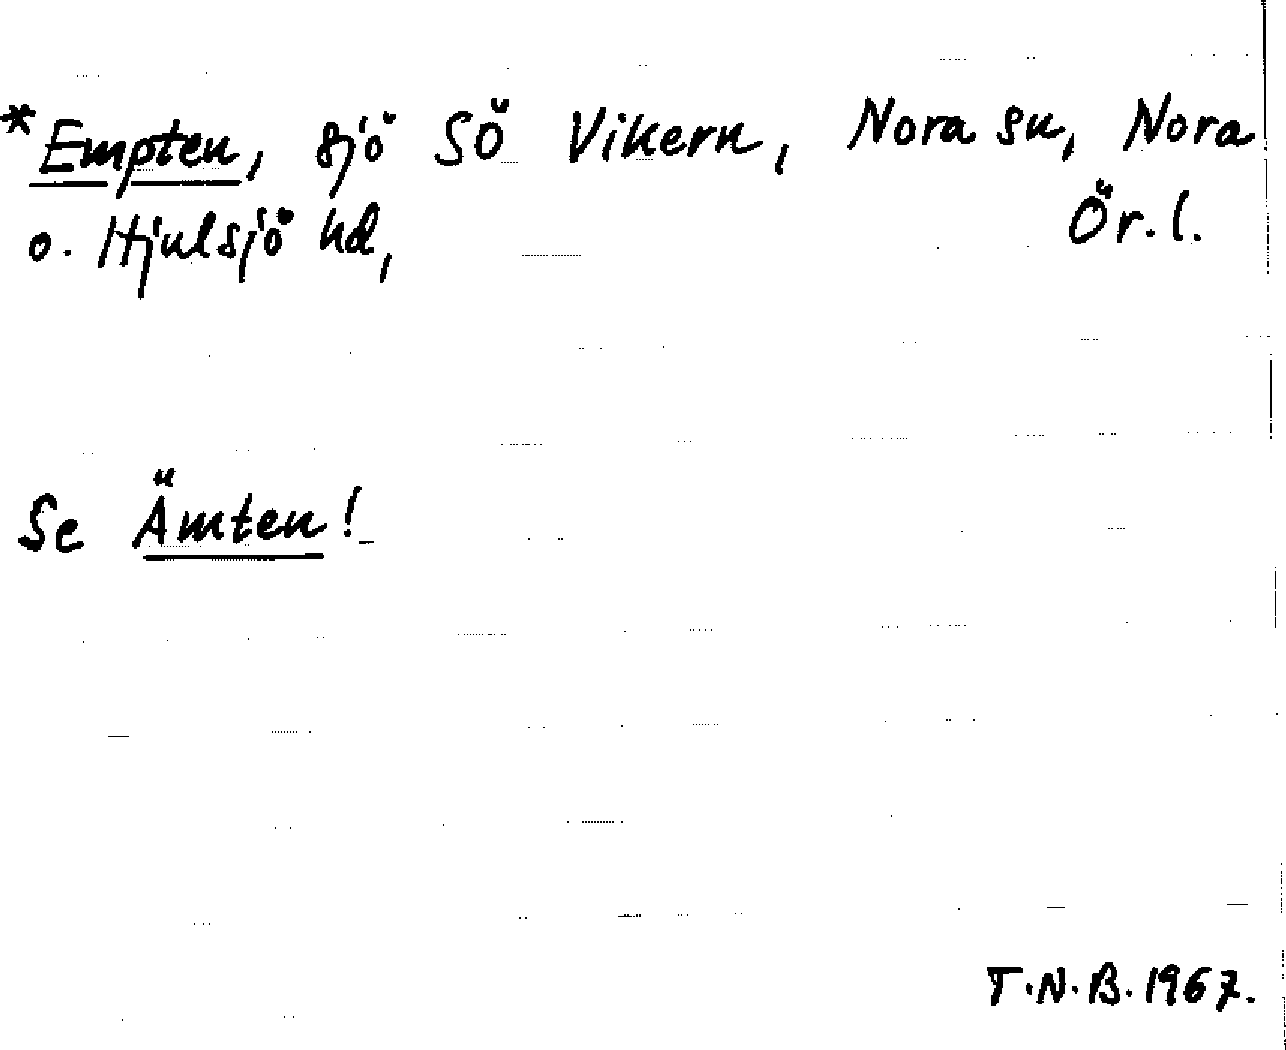 *Empten, sjö SÖ Vikern, Nora sn, Nora
o. Hjulsjö hd, Ör. l.
Se Ämten!
T.N.B. 1967.